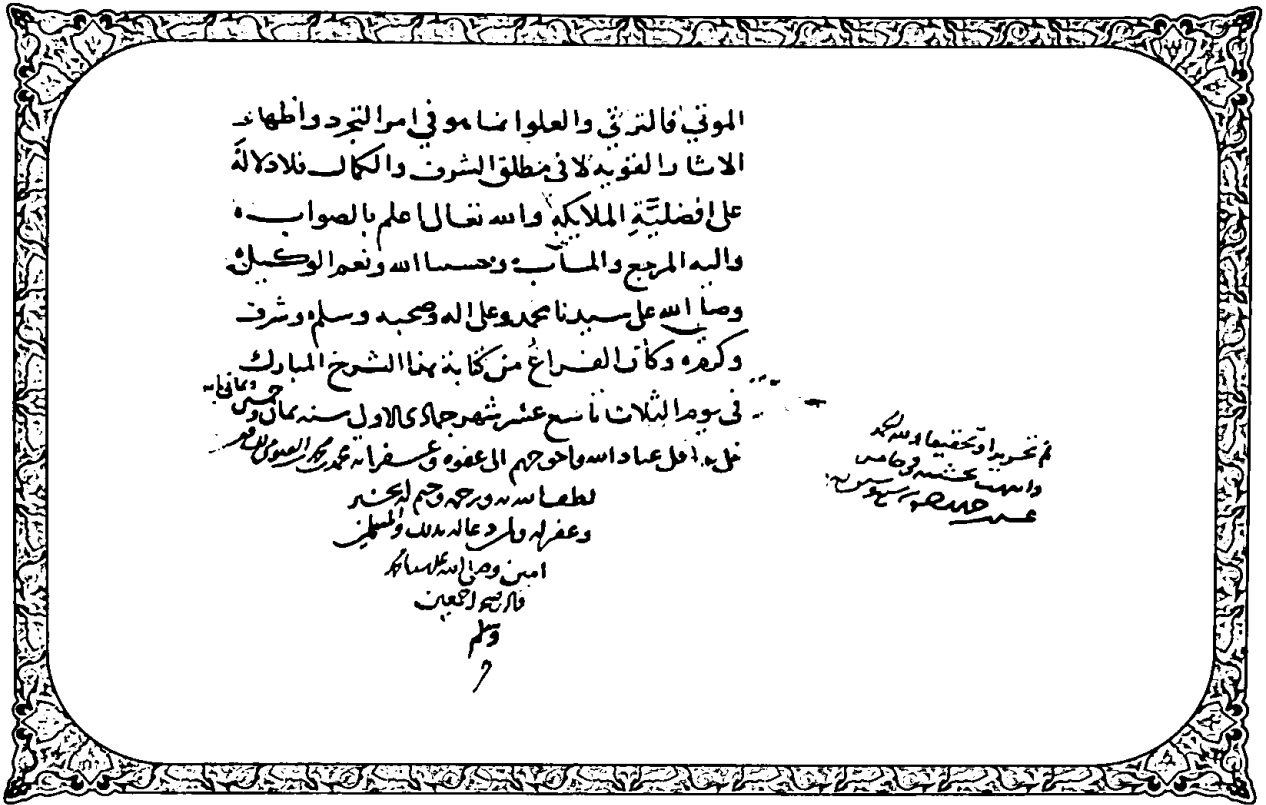 الموتي فالترقي والعلو انما هو في امر التجرد واظهار
الاثار القويه لا في مطلق الشرف والكمال فلا دلالة
على افضليَّةِ الملايكة والله تعالى اعلم بالصواب ه
واليه المرجع والمـآب ه وحسبنا الله ونعم الوكيل ه
وصلى الله على سيدنا محمد وعلى اله وصحبه وسلم وشرف
وكرم ه وكان الفراغ من كتابة هذا الشرح المبارك
في يوم الثلاث تاسع عشر شهر جمادى الاول سنه ثمان وخمسين وثمانمايه
على يد اقل عباد الله واحوجهم الى عفوه وغفرانه محمد
لطف الله به ورحمه وختم له بخير
وغفر له ولمن دعا له بذلك والمسلمين
امين وصلى الله على سيدنا محمد
واله وصحبه اجمعين
وسلم
تم تحريرا وتحقيقا ولله الحمد